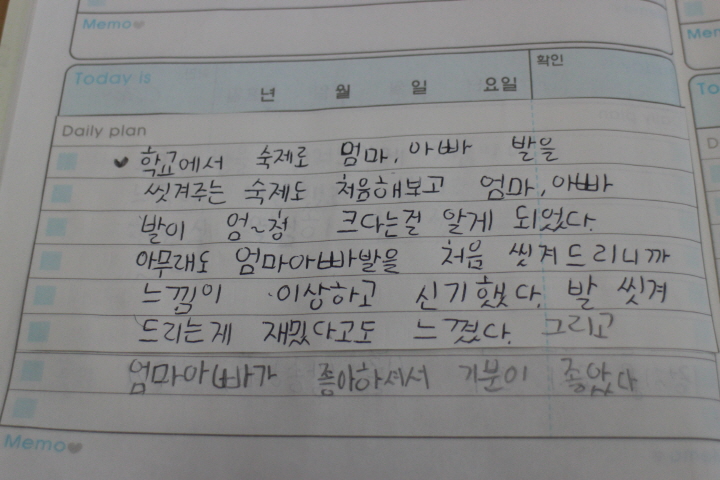 Memo
Today is
년 월 일 요일 확인
Daily plan
학교에서 숙제로 엄마, 아빠 발을
씻겨주는 숙제도 처음해보고 엄마, 아빠
발이 엄~청 크다는걸 알게 되었다.
아무래도 엄마아빠발을 처음 씻겨드리니까
느낌이 이상하고 신기했다. 발 씻겨
드리는게 재밌다고도 느꼈다. 그리고
엄마아빠가 좋아하셔서 기분이 좋았다
Memo